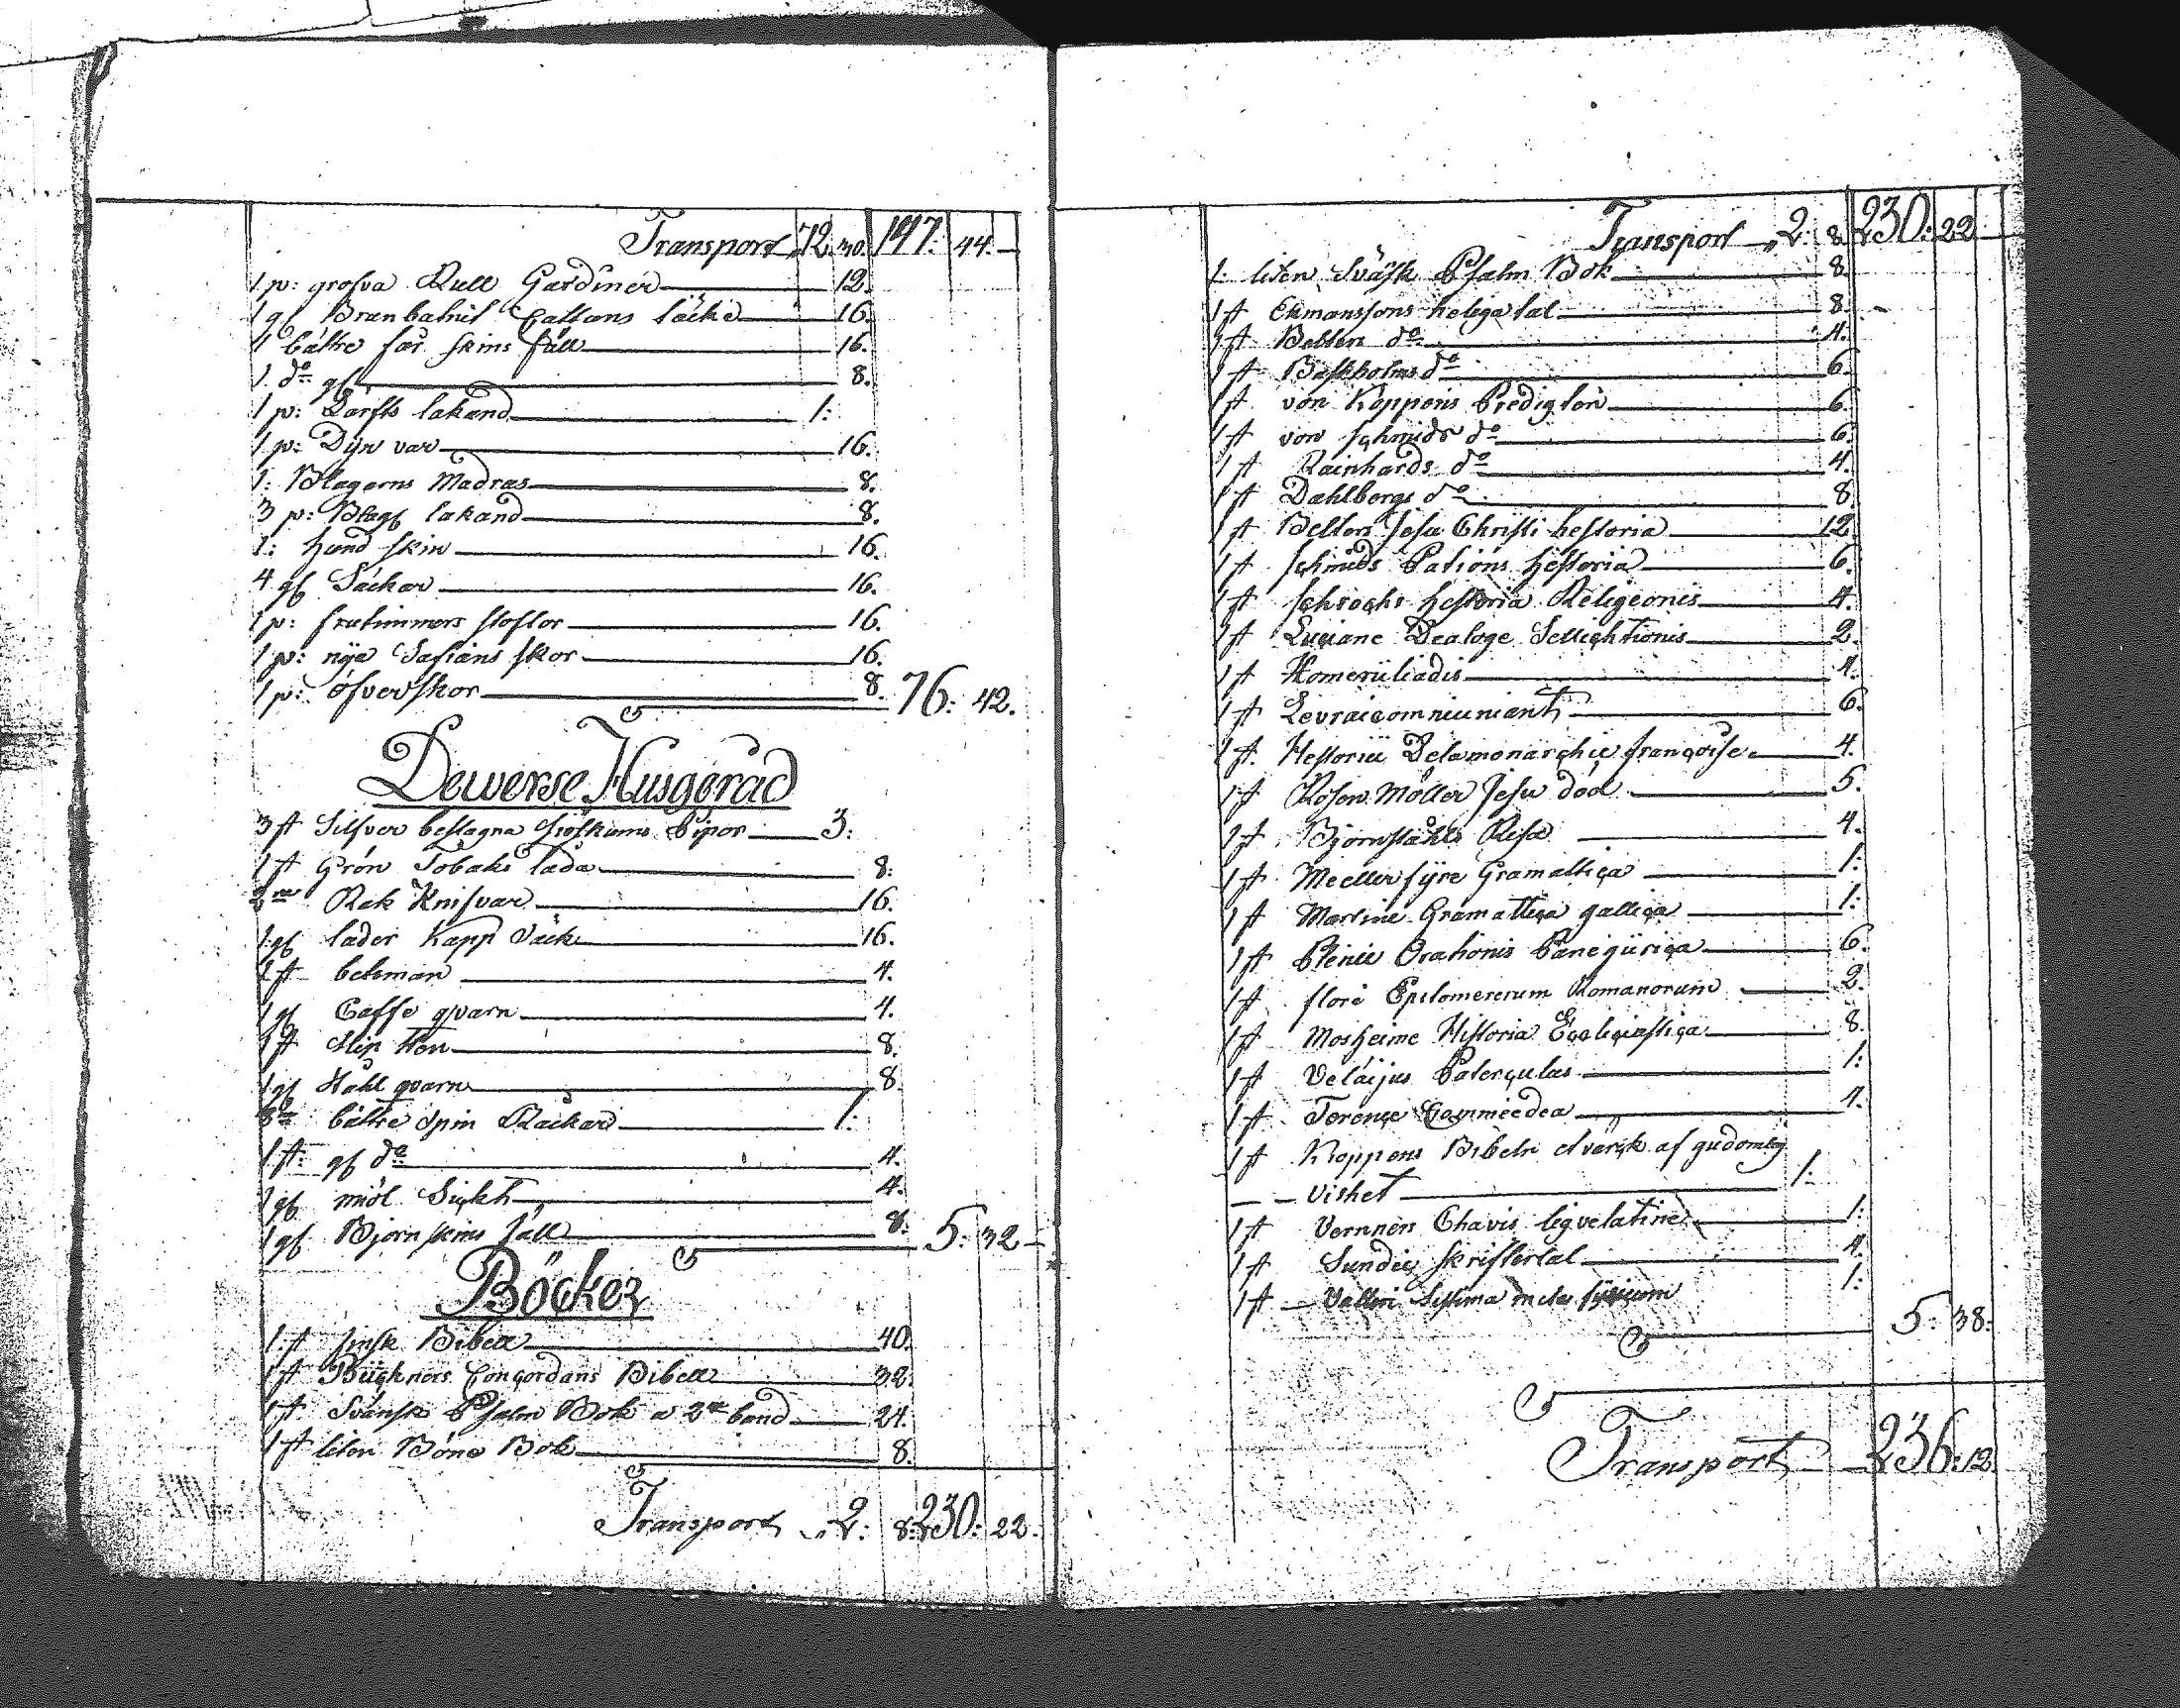 Transport 72. 30. 147: 44. —
1 p: grofva Rull Gardiner 12.
1 gl Brunbatnit Cattuns täcke 16.
1 bättre får skins fäll 16.
1 do gl 8.
1 p: Lärfts lakand 1:
1 p: Dyn var 16.
1: Blagarns Madras 8.
3 p: Blagl lakand 8.
1: hund skin 16.
4 gl Säckar 16.
1 p: frutimmers stoflor 16.
1 p: nya Safians skor 16.
1 p: öfverskor 8. 76: 42.
Dewerse Husgeråd
3 st Silfver beslagna Sioskums Pipor 3:
1 st Grön Tobaks lada 8:
2 Rak Knifvar 16.
1 gl läder Kapp Säck 16.
1 st betsman 4.
1 gl Caffe qvarn 4.
1 st Slip sten 8.
1 gl Hahl qvarn 8.
bättre Spin Råckar 1:
1 st: gl do 4.
1 gl miöl Sickt 4.
1 gl Bjorn skins fäll 8. 5: 32 —
Böcker
1 st finsk Bibel 40.
1 st Bückners Concordans Bibel 32.
1 st Svänsk Psalm Bok a 2 band 24.
1 st liten Böne Bok 8.
Transport 2: 8: 230: 22.
Transport 2: 8. 230: 22
1: liten Sväsk Psalm Bok 8.
1 st Ekmanssons heliga tal 8.
1 st Bellers do 4.
1 st Bastholms do 6.
1 st von Koppens Predigter 6.
1 st von Schmids do 6.
1 st Rainhards do 4.
1 st Dahlbergs do 8
1 st Bellers Jesu Christi hestoria 12
1 st Schmids Pations hestoria 6.
1 st Schrochs hestoria Religeonis 4.
1 st Luciane Dealoge Sellechtionis 2.
1 st Homeriiliadis 4.
1 st Levraicomniuniant 6.
1 st Hestorie Delamonarchie françoise 4.
1 st Rosen Möller Jesu död 5.
1 st Bjornståhls Resa 4.
1 st Meellerfyre Gramattica 1:
1 st Martine Gramattica gallica 1:
1 st Plenie Orationis Panegurica 6.
1 st flore Epitomererum Romanorum 2.
1 st Mosheime Historia Ecclesiastica 8.
1 st Veläijus Paterculus 1:
1 st Terence Commeedea 4.
1 st Koppens Bibeln et värck af gudomlig
— — vishet 1:
1 st Vernners Chavis legvelatine 1:
1 st Sundii skriftertal 4.
1 st — Valleri Sistima 1:
5: 38.
Transport 236: 12.